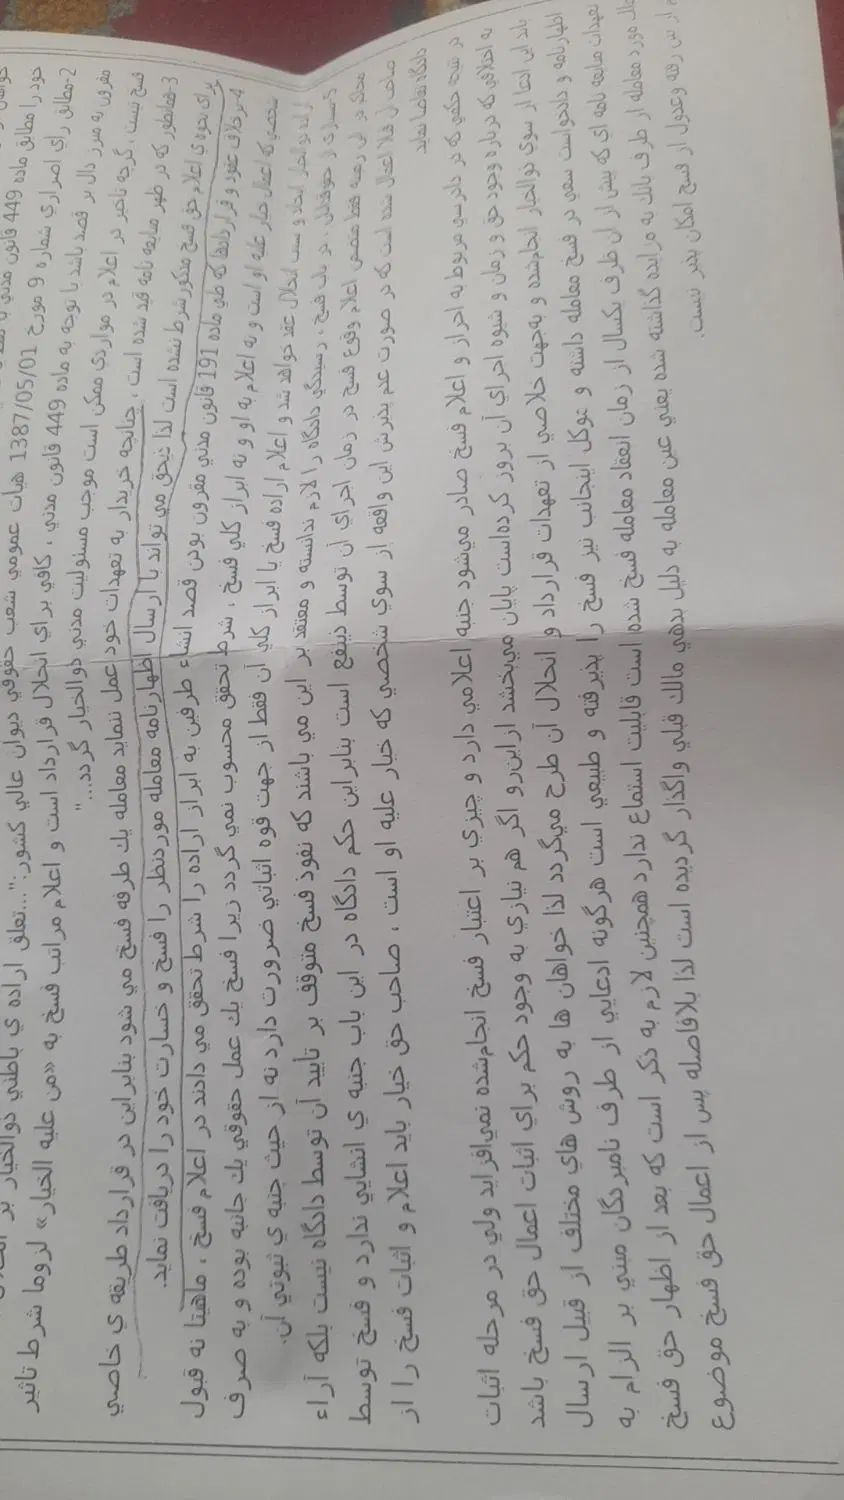 خود را مطابق ماده 449 قانون مدني
2-مطابق راي اصراري شماره 9 مورخ 1387/05/01 هيات عمومي شعب حقوقي ديوان عالي كشور:"...تعلق اراده ي باطني ذوالخيار بر
مقرون به مبرز دال بر قصد باشد با توجه به ماده 449 قانون مدني ، كافي براي انحلال قرارداد است و اعلام مراتب فسخ به «من عليه الخيار» لزوما شرط تاثير
فسخ نيست ، گرچه تاخير در اعلام در مواردي ممكن است موجب مسئوليت مدني ذوالخيار گردد..."
3-همانطور كه در ظهر مبايعه نامه قيد شده است ، چنانچه خريدار به تعهدات خود عمل ننمايد معامله يك طرفه فسخ مي شود بنابراين در قرارداد طريقه ي خاصي
براي نحوه ي اعلام حق فسخ مذكور شرط نشده است لذا ذيحق مي تواند با ارسال اظهارنامه معامله موردنظر را فسخ و خسارت خود را دريافت نمايد.
4-برخلاف عقود و قراردادها كه طي ماده 191 قانون مدني مقرون بودن قصد انشاء طرفين به ابراز اراده را شرط تحقق مي دانند در اعلام فسخ ، ماهيتا نه قبول
شخصي كه اعمال خيار عليه او است و نه اعلام به او و نه ابراز كلي فسخ ، شرط تحقق محسوب نمي گردد زيرا فسخ يك عمل حقوقي يك جانبه بوده و به صرف
اراده ذوالخيار ايجاد و سبب انحلال عقد خواهد شد و اعلام اراده فسخ يا ابراز كلي آن فقط از جهت قوه اثباتي ضرورت دارد نه از حيث جنبه ي ثبوتي آن.
5-بسياري از حقوقدانان ، در باب فسخ ، رسيدگي دادگاه را لازم ندانسته و معتقد بر اين مي باشند كه نفوذ فسخ متوقف بر تأييد آن توسط دادگاه نيست بلكه آراء
محاكم در اين زمينه فقط متضمن اعلام وقوع فسخ در زمان اجراي آن توسط ذينفع است بنابراين حكم دادگاه در اين باب جنبه ي انشايي ندارد و فسخ توسط
صاحب آن قبلا اعمال شده است كه در صورت عدم پذيرش اين واقعه از سوي شخصي كه خيار عليه او است ، صاحب حق خيار بايد اعلام و اثبات فسخ را از
دادگاه تقاضا نمايد
در نتيجه حكمي كه در دادرسي مربوط به احراز و اعلام فسخ صادر مي‌شود جنبه اعلامي دارد و چيزي بر اعتبار فسخ انجام‌شده نمي‌افزايد ولي در مرحله اثبات
به اختلافي كه درباره وجود حق و زمان و شيوه اجراي آن بروز كرده‌است پايان مي‌بخشد ازاين‌رو اگر هم نيازي به وجود حكم براي اثبات اعمال حق فسخ باشد
بايد اين ادعا از سوي ذوالخيار انجام‌شده و به‌جهت خلاصي از تعهدات قرارداد و انحلال آن طرح مي‌گردد لذا خواهان ها به روش هاي مختلف از قبيل ارسال
اظهارنامه و دادخواست سعي در فسخ معامله داشته و موكل اينجانب نيز فسخ را پذيرفته و طبيعي است هرگونه ادعايي از طرف نامبردگان مبني بر الزام به
تعهدات مبايعه نامه اي كه پيش از آن ظرف يكسال از زمان انعقاد معامله فسخ شده است قابليت استماع ندارد همچنين لازم به ذكر است كه بعد از اظهار حق فسخ
ملك مورد معامله از طرف بانك به مزايده گذاشته شده يعني عين معامله به دليل بدهي مالك قبلي واگذار گرديده است لذا بلافاصله پس از اعمال حق فسخ موضوع
از بين رفته وعدول از فسخ امكان پذير نيست.